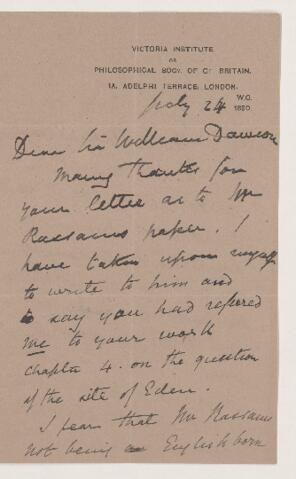 VICTORIA INSTITUTE
OR
PHILOSOPHICAL SOCY. OF GT. BRITAIN.
1A. ADELPHI TERRACE, LONDON.
W.C.
July 24 1890.
Dear Sir William Dawson
Many thanks for
your letter as to Mr
Rassam's paper. I
have taken upon myself
to write to him and
to say you had referred
me to your work
chapter 4. on the question
of the site of Eden.
I fear that Mr Rassam
not being an English born